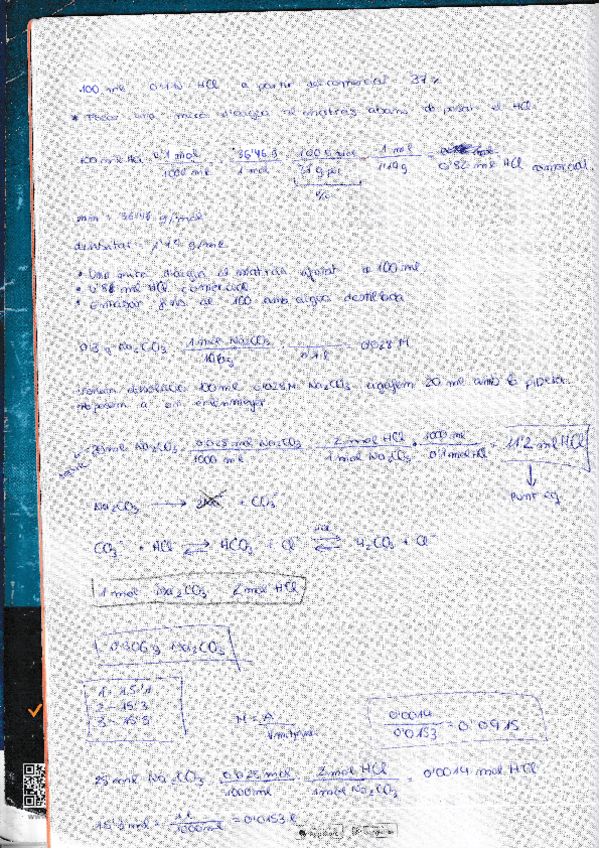 100 ml 0'1 N HCl a partir del comercial 37%
* Posar una mica d'aigua al matràs abans de posar el HCl.
100 ml HCl 0'1 mol / 1000 ml · 36'46 g / 1 mol · 100 g / 37 g · 1 ml / 1'19 g = 0'82 ml HCl comercial.
mm = 36'46 g/mol
densitat = 1'19 g/ml
* Una mica d'aigua al matràs aforat a 100 ml.
* 0'82 ml HCl comercial
* Enrasar fins al 100 amb aigua destil·lada
0'3 g Na2CO3 1 mol Na2CO3 / 106 g · / 0'1 l = 0'028 M
dissolució 100 ml 0'028 M Na2CO3 agafem 20 ml amb la pipeta.
posem a erlenmeyer
20 ml Na2CO3 · 0'028 mol Na2CO3 / 1000 ml · 2 mol HCl / 1 mol Na2CO3 · 1000 ml / 0'1 mol HCl = 11'2 ml HCl
↓
Punt eq
Na2CO3 → + CO3
CO3 + HCl ⇌ HCO3 + Cl ⇌ H2CO3 + Cl
1 mol Na2CO3 2 mol HCl
1. 0'306 g Na2CO3
1 - 15'1
2 - 15'3
3 - 15'5
0'0014 / 0'0153 = 0'0915
25 ml Na2CO3 · 0'028 mol / 1000 ml · 2 mol HCl / 1 mol Na2CO3 = 0'0014 mol HCl
15'3 ml = 1 l / 1000 ml = 0'0153 l